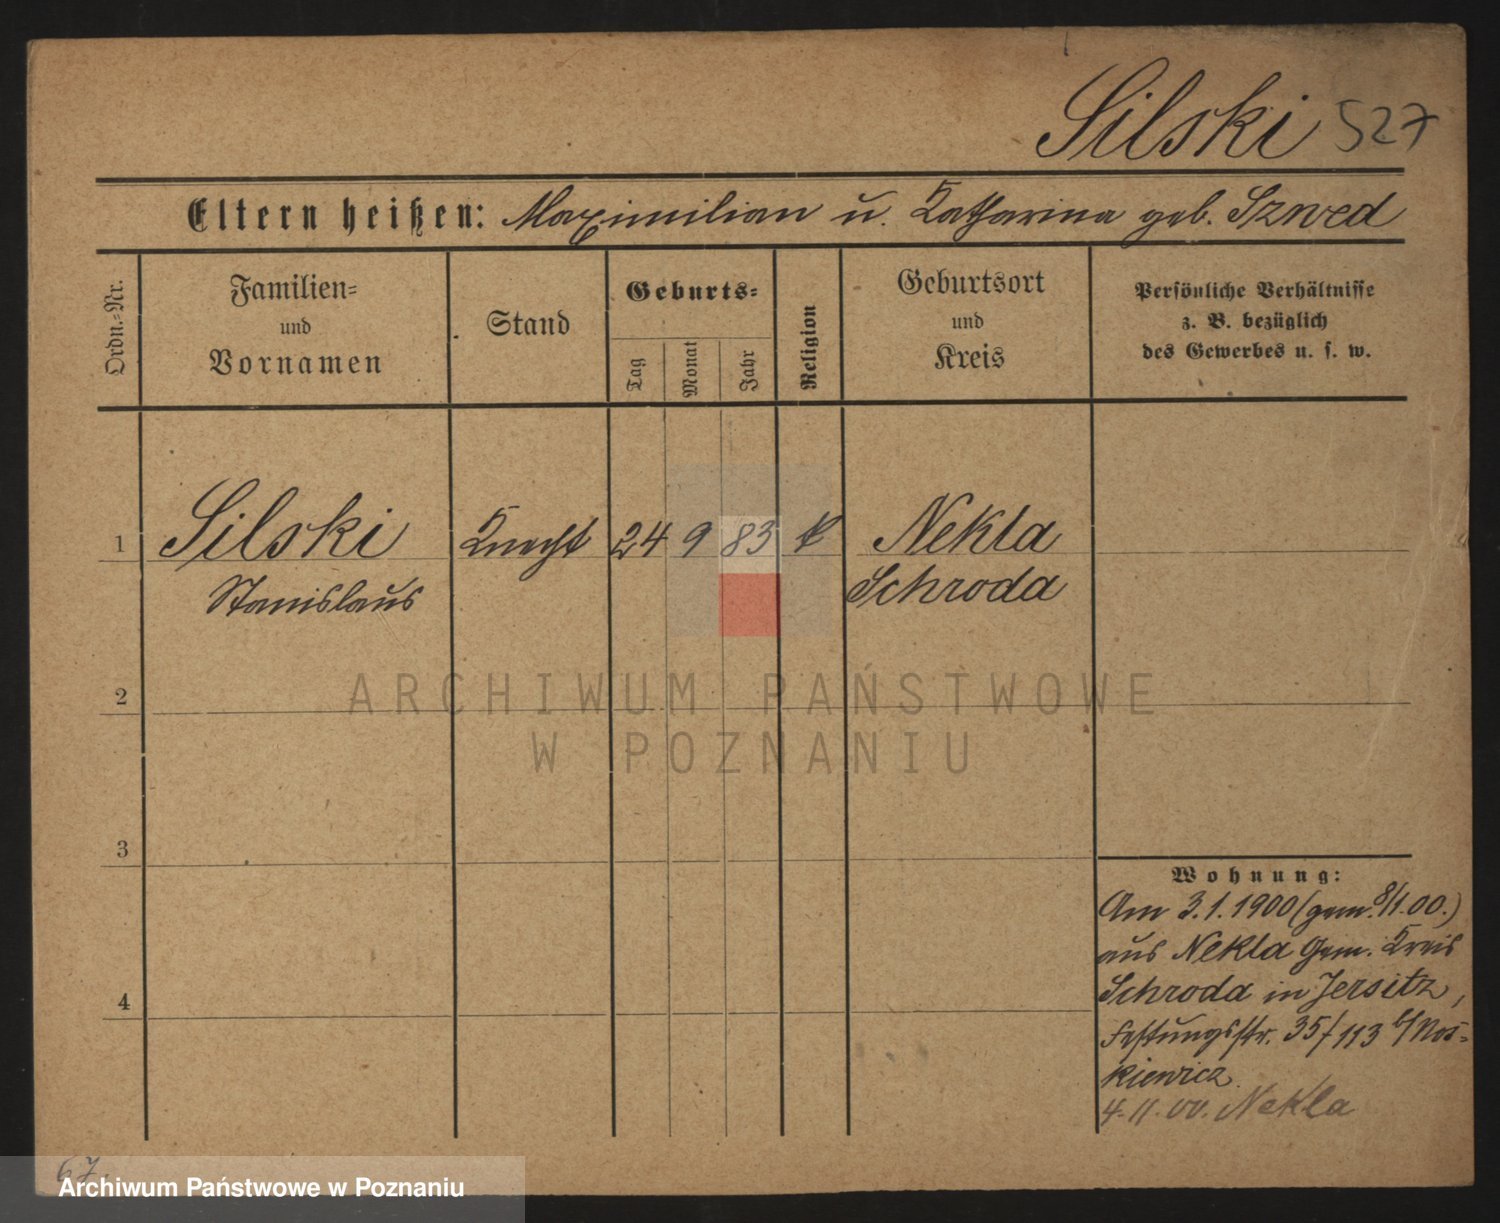 Silski 527
Eltern heißen: Maximilian u. Katharina geb. Szwed
Ordn.-Nr.
Familien-
und
Vornamen
Stand
Geburts-
Tag
Monat
Jahr
Religion
Geburtsort
und
Kreis
Persönliche Verhältnisse
z. B. bezüglich
des Gewerbes u. s. w.
1 Silski Knecht 24 9 83 k Nekla
Stanislaus Schroda
2
ARCHIWUM PAŃSTWOWE
W POZNANIU
3
Wohnung:
Am 3.1.1900 (gem. 8/1.00.)
aus Nekla Gem. Kreis
4
Schroda in Jersitz,
Festungsstr. 35/113 b/ Nos-
kiewicz
4.11.00. Nekla
67.
Archiwum Państwowe w Poznaniu